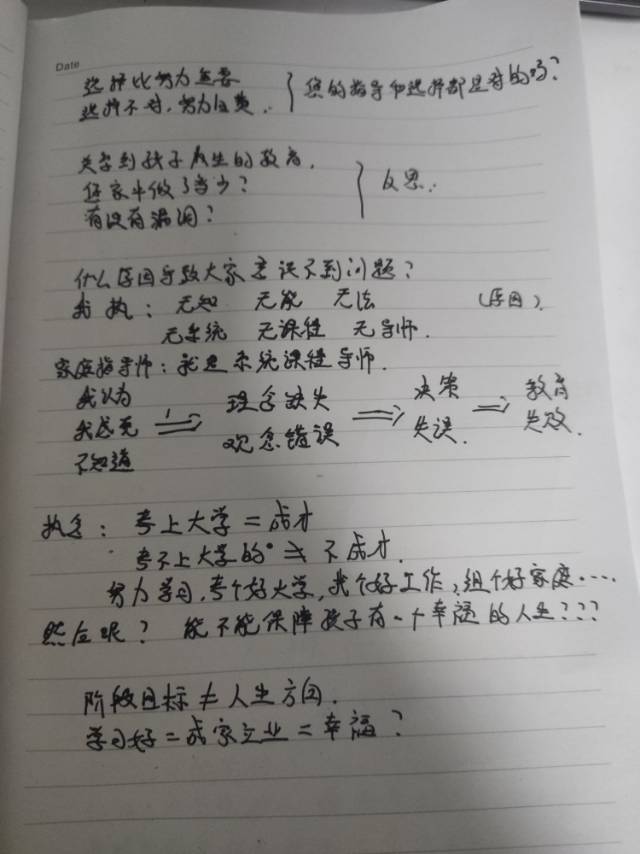 Date
选择比努力重要
选择不对,努力白费. } 您的指导和选择都是对的吗?
关乎到孩子人生的教育,
您家牛做了当少?
有没有漏洞? } 反思.
什么原因导致大家意识不到问题?
我执: 无知 无能 无法 (原因).
无系统 无课程 无导师.
家庭指导师: 就是系统课程导师.
我认为
我感觉 ⇒ 理念缺失 ⇒ 决策 ⇒ 教育
不知道 观念错误 失误. 失败.
执念: 考上大学=成才
考不上大学的 不成才.
努力学习,考个好大学,找个好工作,组个好家庭....
然后呢? 能不能保障孩子有一个幸福的人生???
阶段目标≠人生方向.
学习好=成家立业=幸福?